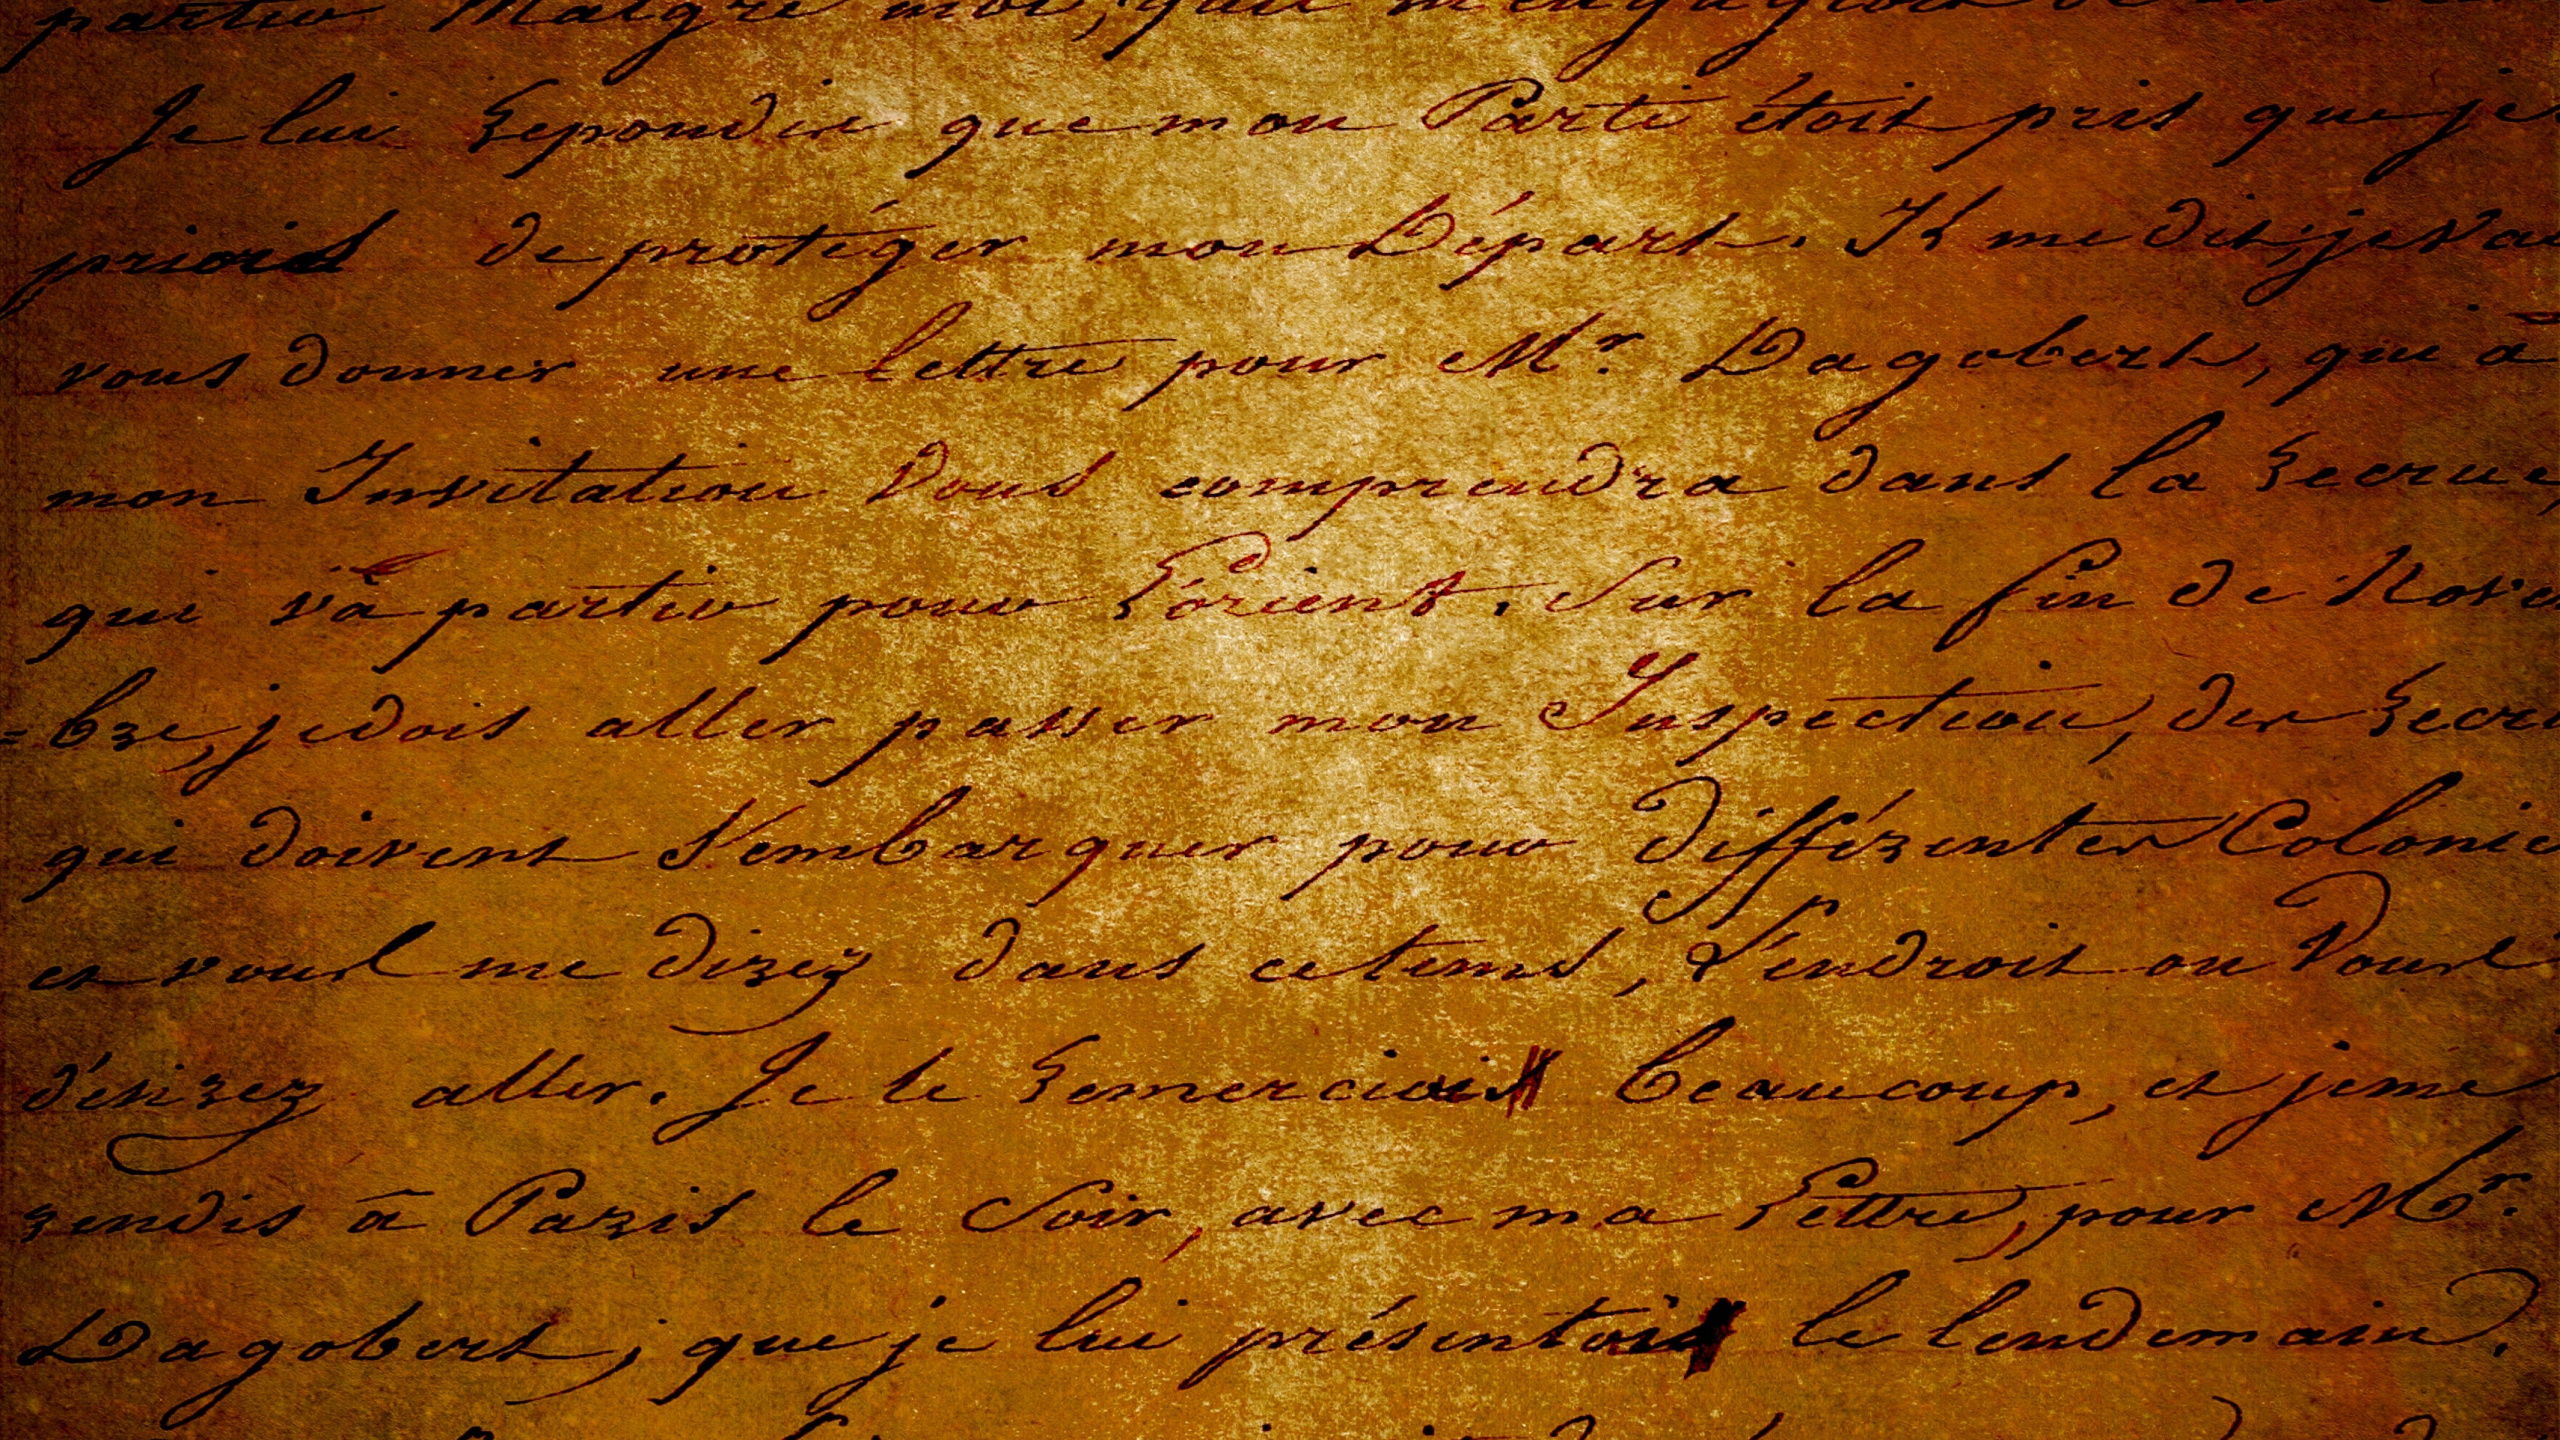 partir Malgré moi,
Je lui Repondis que mon Parti étoit pris que je
priois de protéger mon Départ. Il me dit; je vai
vous donner une lettre pour Mr. Dagobert, qui à
mon Invitation Vous comprendra dans la Recrue,
qui và partir pour L'orient. Sur la fin de Nove
=bre, je dois aller passer mon Inspection, des Recr
qui doivent S'embarquer pour différentes Colonie
et vous me direz dans ce tems, L'endroit ou Vous
désirez aller. Je le Remerciai beaucoup, et je me
rendis à Paris le Soir, avec ma Lettre, pour Mr.
Dagobert, que je lui présentai le lendemain.